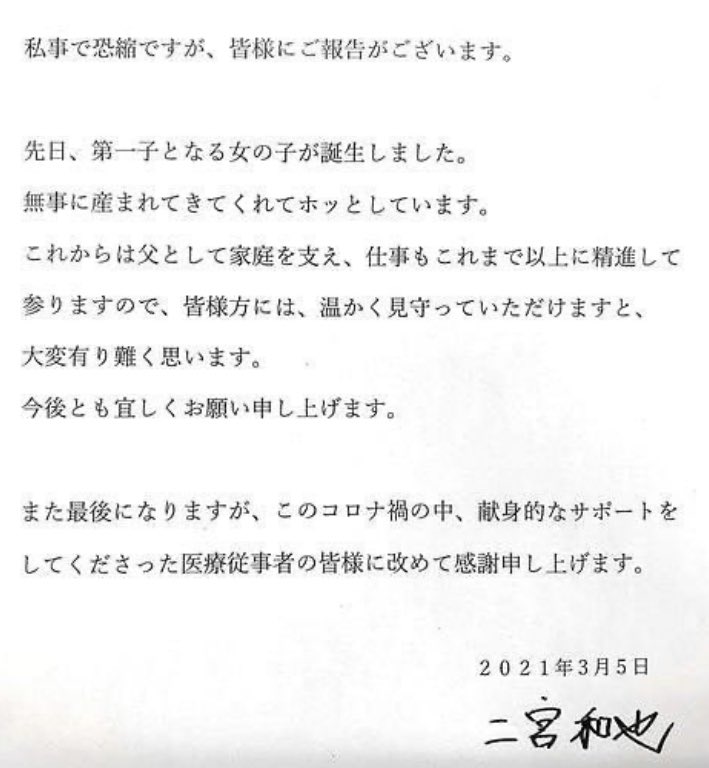 私事で恐縮ですが、皆様にご報告がございます。
先日、第一子となる女の子が誕生しました。
無事に産まれてきてくれてホッとしています。
これからは父として家庭を支え、仕事もこれまで以上に精進して
参りますので、皆様方には、温かく見守っていただけますと、
大変有り難く思います。
今後とも宜しくお願い申し上げます。
また最後になりますが、このコロナ禍の中、献身的なサポートを
してくださった医療従事者の皆様に改めて感謝申し上げます。
２０２１年３月５日
二宮和也